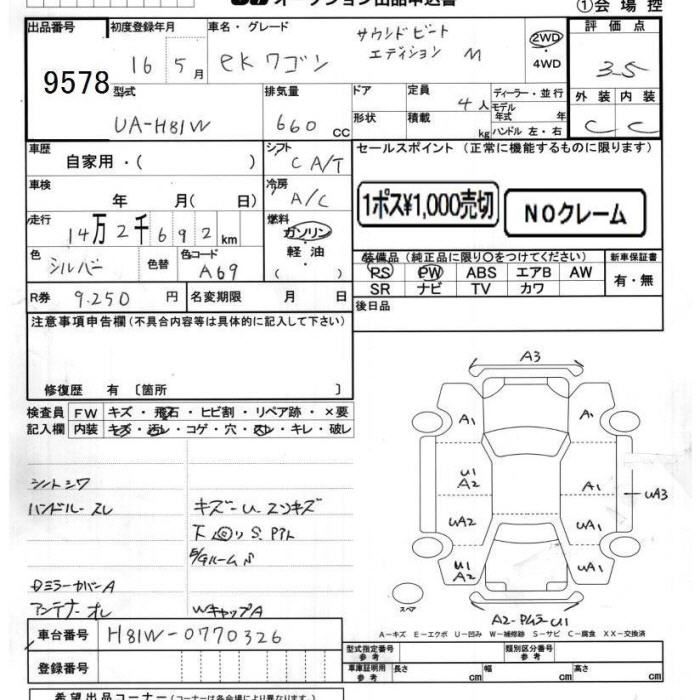 オークション出品申込書
①会場控
出品番号
9578
初度登録年月
16 5月
車名・グレード
eKワゴン サウンドビート
エディション M
2WD
・4WD
評価点
3.5
型式
UA-H81W
排気量
660 CC
ドア
定員
4人
形状
積載
kg
ディーラー・並行
モデル
年式 年
ハンドル 左・右
外装 内装
C C
車歴
自家用・( )
シフト
C A/T
セールスポイント (正常に機能するものに限ります)
1ポス¥1,000売切
NOクレーム
車検
年 月( 日)
冷房
A/C
走行
14万2千692km
燃料
ガソリン
・軽油
( )
色
シルバー
色替
色コード
A69
装備品(純正品に限り○をつけてください)
PS PW ABS エアB AW
SR ナビ TV カワ
新車保証書
有・無
R券 9.250 円
名変期限 月 日
後日品
注意事項申告欄(不具合内容等は具体的に記入して下さい)
修復歴 有 〔箇所 〕
検査員
記入欄
FW キズ・飛石・ヒビ割・リペア跡・×要
内装 キズ・汚レ・コゲ・穴・スレ・キレ・破レ
シートシワ
ハンドルースレ
キズーU エンキズ
下回りS.Pタレ
E/Gルーム S
Dミラーカバー A
アンテナーオレ
WキャップA
A3
A1
A1
U1
A2
A1
UA3
UA2
UA1
U1
A2
UA1
スペア
A2-PムラーU1
A-キズ E-エクボ U-凹み W-補修跡 S-サビ C-腐食 XX-交換済
車台番号 H81W-0770326
登録番号
型式指定番号
参考
類別区分番号
参考
車庫証明用
参考
長さ cm 幅 cm 高さ cm
希望出品コーナー(コーナーは各会場により異なります)